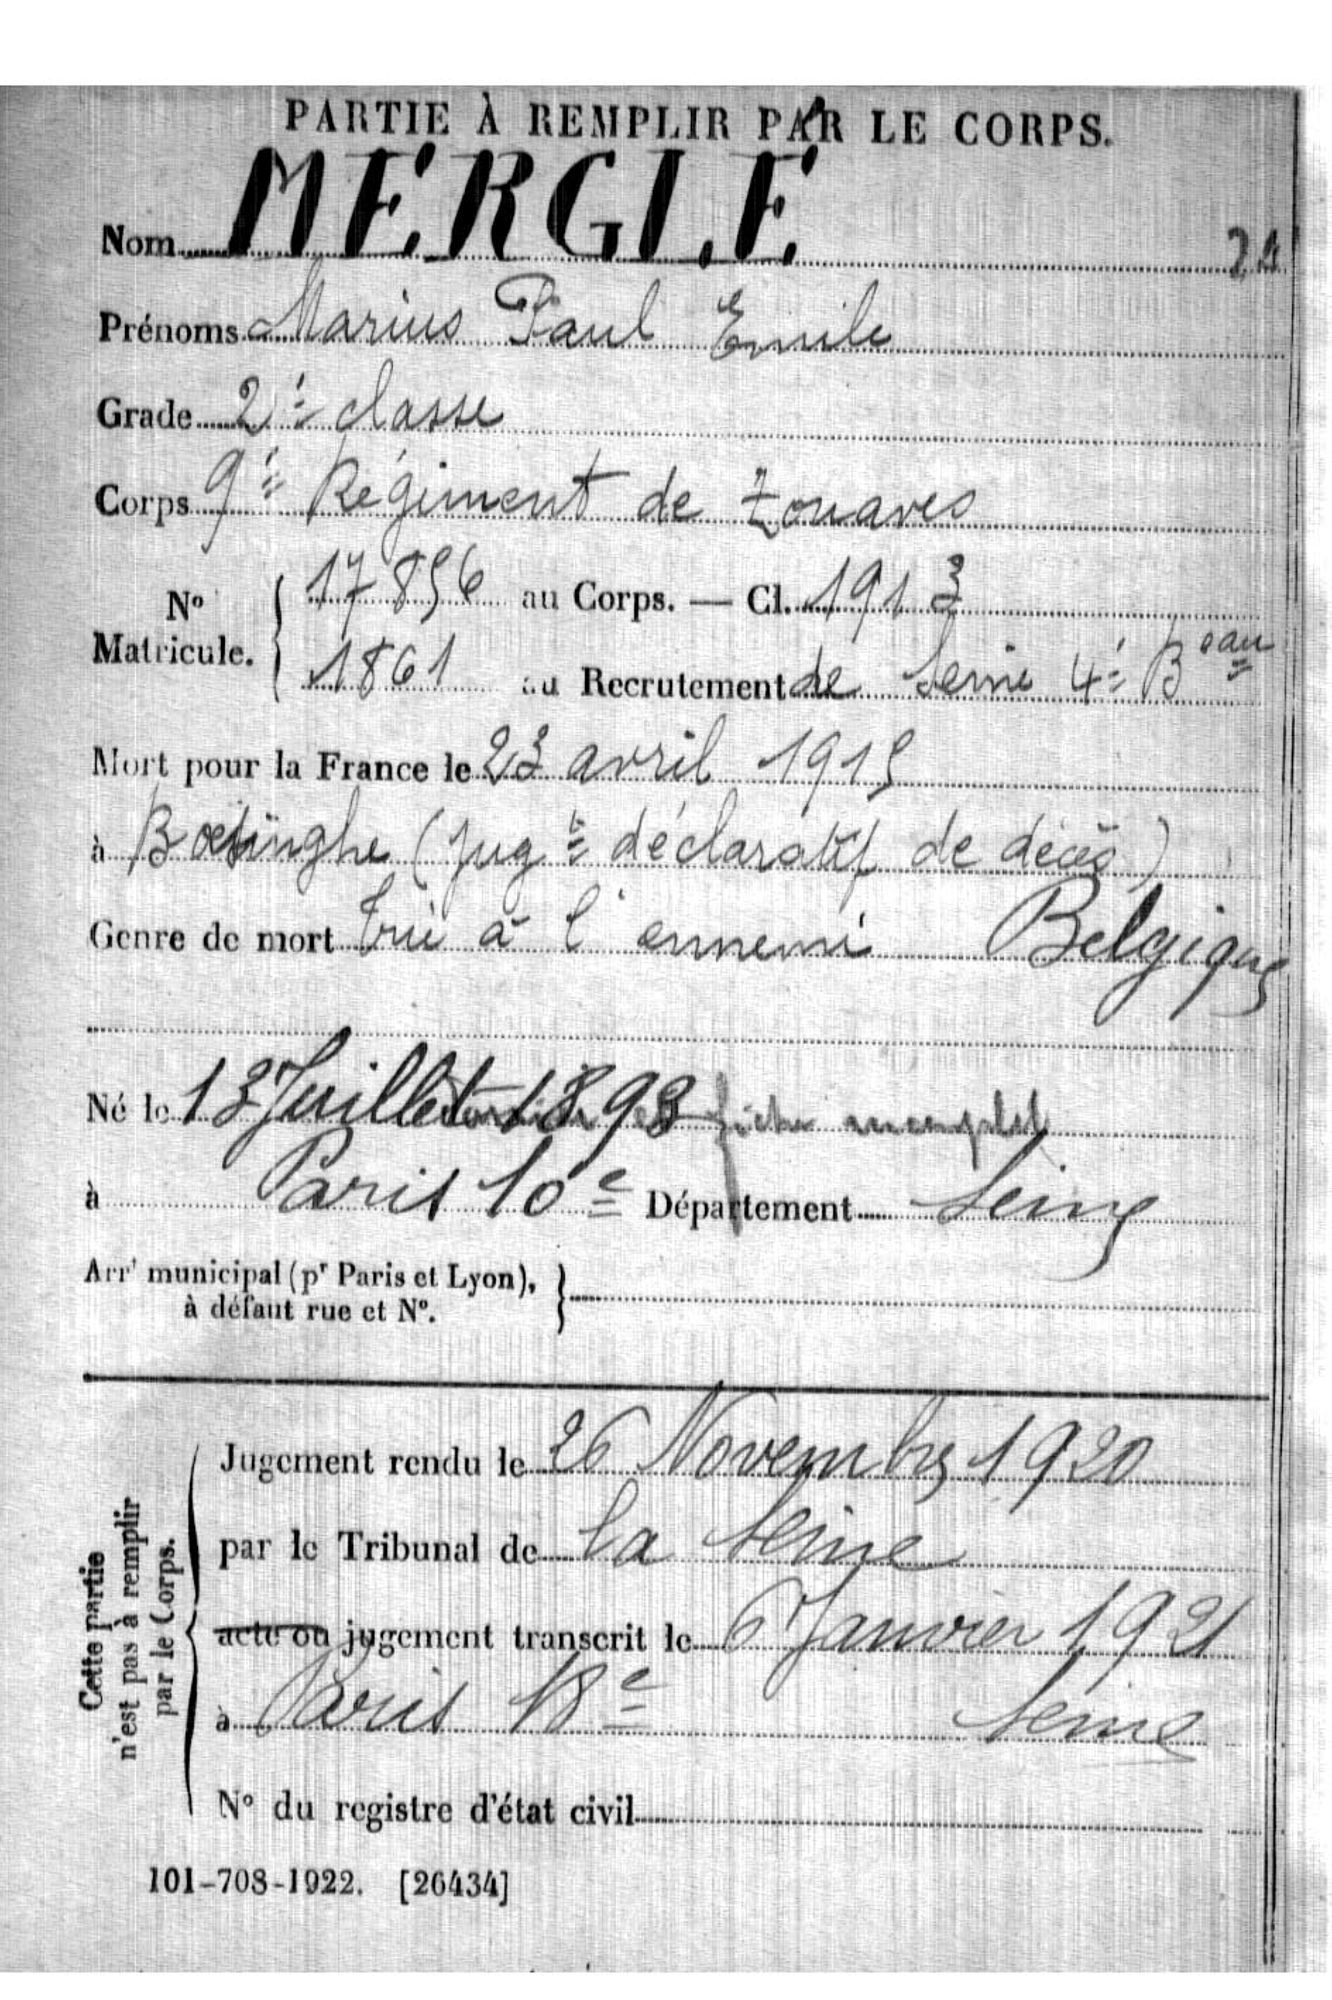 PARTIE À REMPLIR PAR LE CORPS.
Nom MERGLÉ
Prénoms Marius Paul Emile
Grade 2e classe
Corps 9e Régiment de Zouaves
No Matricule. { 17856 au Corps. — Cl. 1913
1861 au Recrutement de Seine 4e Beau
Mort pour la France le 23 avril 1915
à Boesinghe (Jugt déclaratif de décès)
Genre de mort Tué à l'ennemi Belgique
Né le 13 Juillet 1893 fiche incomplet
à Paris 10e Département Seine
Arrt municipal (pr Paris et Lyon), à défaut rue et No.
Cette partie n'est pas à remplir par le Corps.
Jugement rendu le 26 Novembre 1920
par le Tribunal de la Seine
acte ou jugement transcrit le 6 Janvier 1921
à Paris 18e Seine
No du registre d'état civil
101-708-1922. [26434]